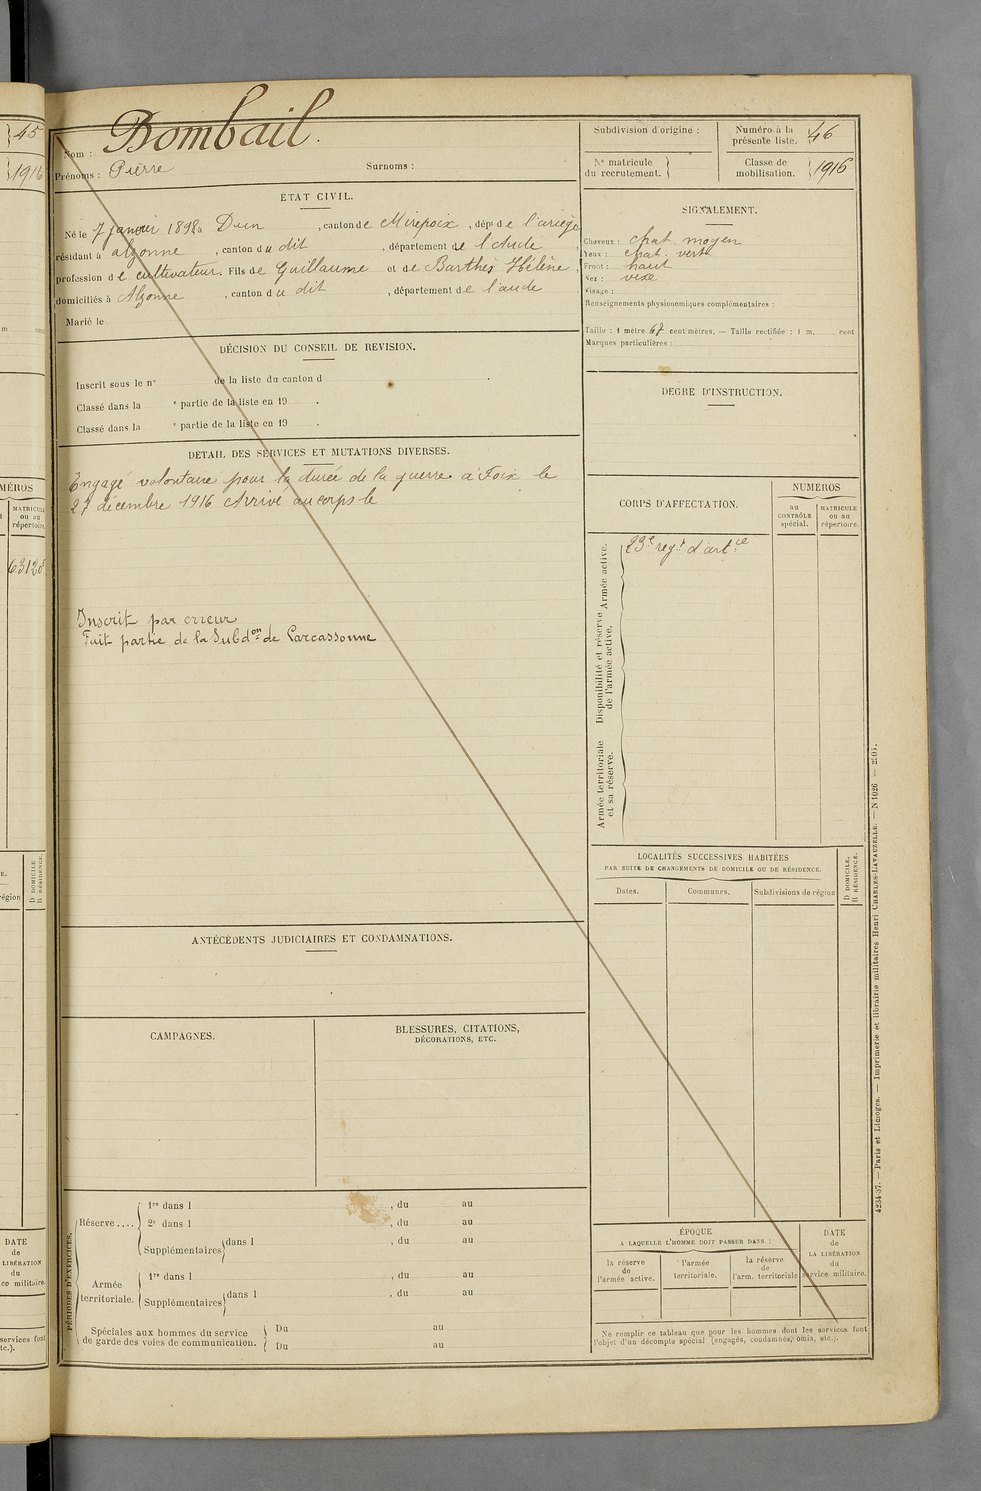 45
1916
Nom : Bombail.
Prénoms : Pierre Surnoms :
ÉTAT CIVIL.
Né le 7 janvier 1898 à Dun , canton de Mirepoix , dépt de l'ariège
résidant à alzonne , canton du dit , département de l'Aude
profession de cultivateur. Fils de Guillaume et de Barthes Hélène ,
domiciliés à Alzonne , canton du dit , département de l'aude
Marié le
DÉCISION DU CONSEIL DE REVISION.
Inscrit sous le n° de la liste du canton d
Classé dans la e partie de la liste en 19 .
Classé dans la e partie de la liste en 19 .
DÉTAIL DES SERVICES ET MUTATIONS DIVERSES.
Engagé volontaire pour la durée de la guerre à Foix le
27 décembre 1916 Arrivé au corps le
Inscrit par erreur
Fait partie de la Subdon de Carcassonne
ANTÉCÉDENTS JUDICIAIRES ET CONDAMNATIONS.
CAMPAGNES.
BLESSURES, CITATIONS,
DÉCORATIONS, ETC.
PÉRIODES D'EXERCICES.
Réserve ....
1re dans l , du au
2e dans l , du au
Supplémentaires dans l , du au
Armée
territoriale.
1re dans l , du au
Supplémentaires dans l , du au
Spéciales aux hommes du service
de garde des voies de communication.
Du au
Du au
Subdivision d'origine :
Numéro à la
présente liste. 46
N° matricule
du recrutement.
Classe de
mobilisation. 1916
SIGNALEMENT.
Cheveux : chat. moyen
Yeux : chat. verts
Front : haut
Nez :
Visage :
Renseignements physionomiques complémentaires :
Taille : 1 mètre 67 centimètres. — Taille rectifiée : 1 m. cent
Marques particulières :
DEGRÉ D'INSTRUCTION.
CORPS D'AFFECTATION.
NUMÉROS
au
CONTRÔLE
spécial.
MATRICULE
ou au
répertoire.
Armée active.
23e regt d'artie
Disponibilité et réserve
de l'armée active.
Armée territoriale
et sa réserve.
LOCALITÉS SUCCESSIVES HABITÉES
PAR SUITE DE CHANGEMENTS DE DOMICILE OU DE RÉSIDENCE.
Dates.
Communes.
Subdivisions de région
D DOMICILE.
R RÉSIDENCE.
ÉPOQUE
A LAQUELLE L'HOMME DOIT PASSER DANS :
la réserve
de
l'armée active.
l'armée
territoriale.
la réserve
de
l'arm. territoriale
DATE
de
LA LIBÉRATION
du
service militaire.
Ne remplir ce tableau que pour les hommes dont les services font
l'objet d'un décompte spécial (engagés, condamnés, omis, etc.).
Paris et Limoges. — Imprimerie et librairie militaires Henri CHARLES-LAVAUZELLE.
MÉROS
MATRICULE
ou au
répertoire.
D DOMICILE.
R RÉSIDENCE.
région
DATE
de
LIBÉRATION
du
ce militaire.
services font
tc.).